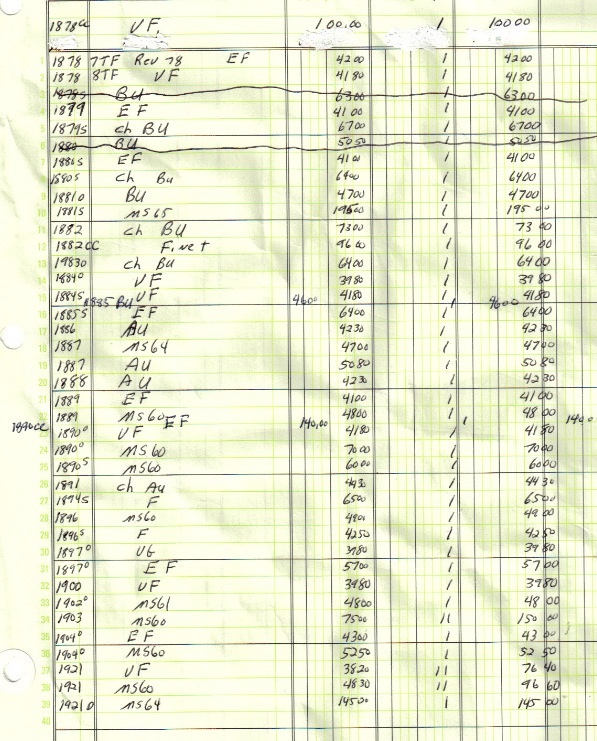 1878cc VF. 100.00 1 100 00
1 1878 7TF Rev 78 EF 42 00 1 42 00
2 1878 8TF VF 41 80 1 41 80
3 1878s BU 63 00 1 63 00
4 1879 EF 41 00 1 41 00
5 1879s ch BU 67 00 1 67 00
6 1880 BU 50 50 1 50 50
7 1880s EF 41 00 1 41 00
8 1880s ch Bu 64 00 1 64 00
9 1881o BU 47 00 1 47 00
10 1881s ms65 195 00 1 195 00
11 1882 ch BU 73 00 1 73 00
12 1882cc 96 00 1 96 00
13 ch BU 64 00 1 64 00
14 1884o VF 39 80 1 39 80
15 1884s VF 41 80 1 41 80
1885 BU 46 00 1
16 1885s EF 64 00 1 64 00
17 1886 AU 42 30 1 42 30
18 1887 ms64 47 00 1 47 00
19 1887 AU 50 80 1 50 80
20 1888 AU 42 30 1 42 30
21 1889 EF 41 00 1 41 00
22 1889 ms60 48 00 1 48 00
1890cc EF 140.00 1 140 0
23 1890o VF 41 80 1 41 80
24 1890o ms60 70 00 1 70 00
25 1890s ms60 60 00 1 60 00
26 1891 ch Au 44 30 1 44 30
27 F 65 00 1 65 00
28 1896 ms60 1 49 00
29 1896s F 42 50 1 42 50
30 1897o VG 39 80 1 39 80
31 1897o EF 57 00 1 57 00
32 1900 VF 39 80 1 39 80
33 1902o ms61 48 00 1 48 00
34 1903 ms60 75 00 11 150 00
35 1904o EF 43 00 1 43 00
36 1904o ms60 52 50 1 52 50
37 1921 VF 38 20 11 76 40
38 1921 ms60 48 30 11 96 60
39 1921 D ms64 145 00 1 145 00
40